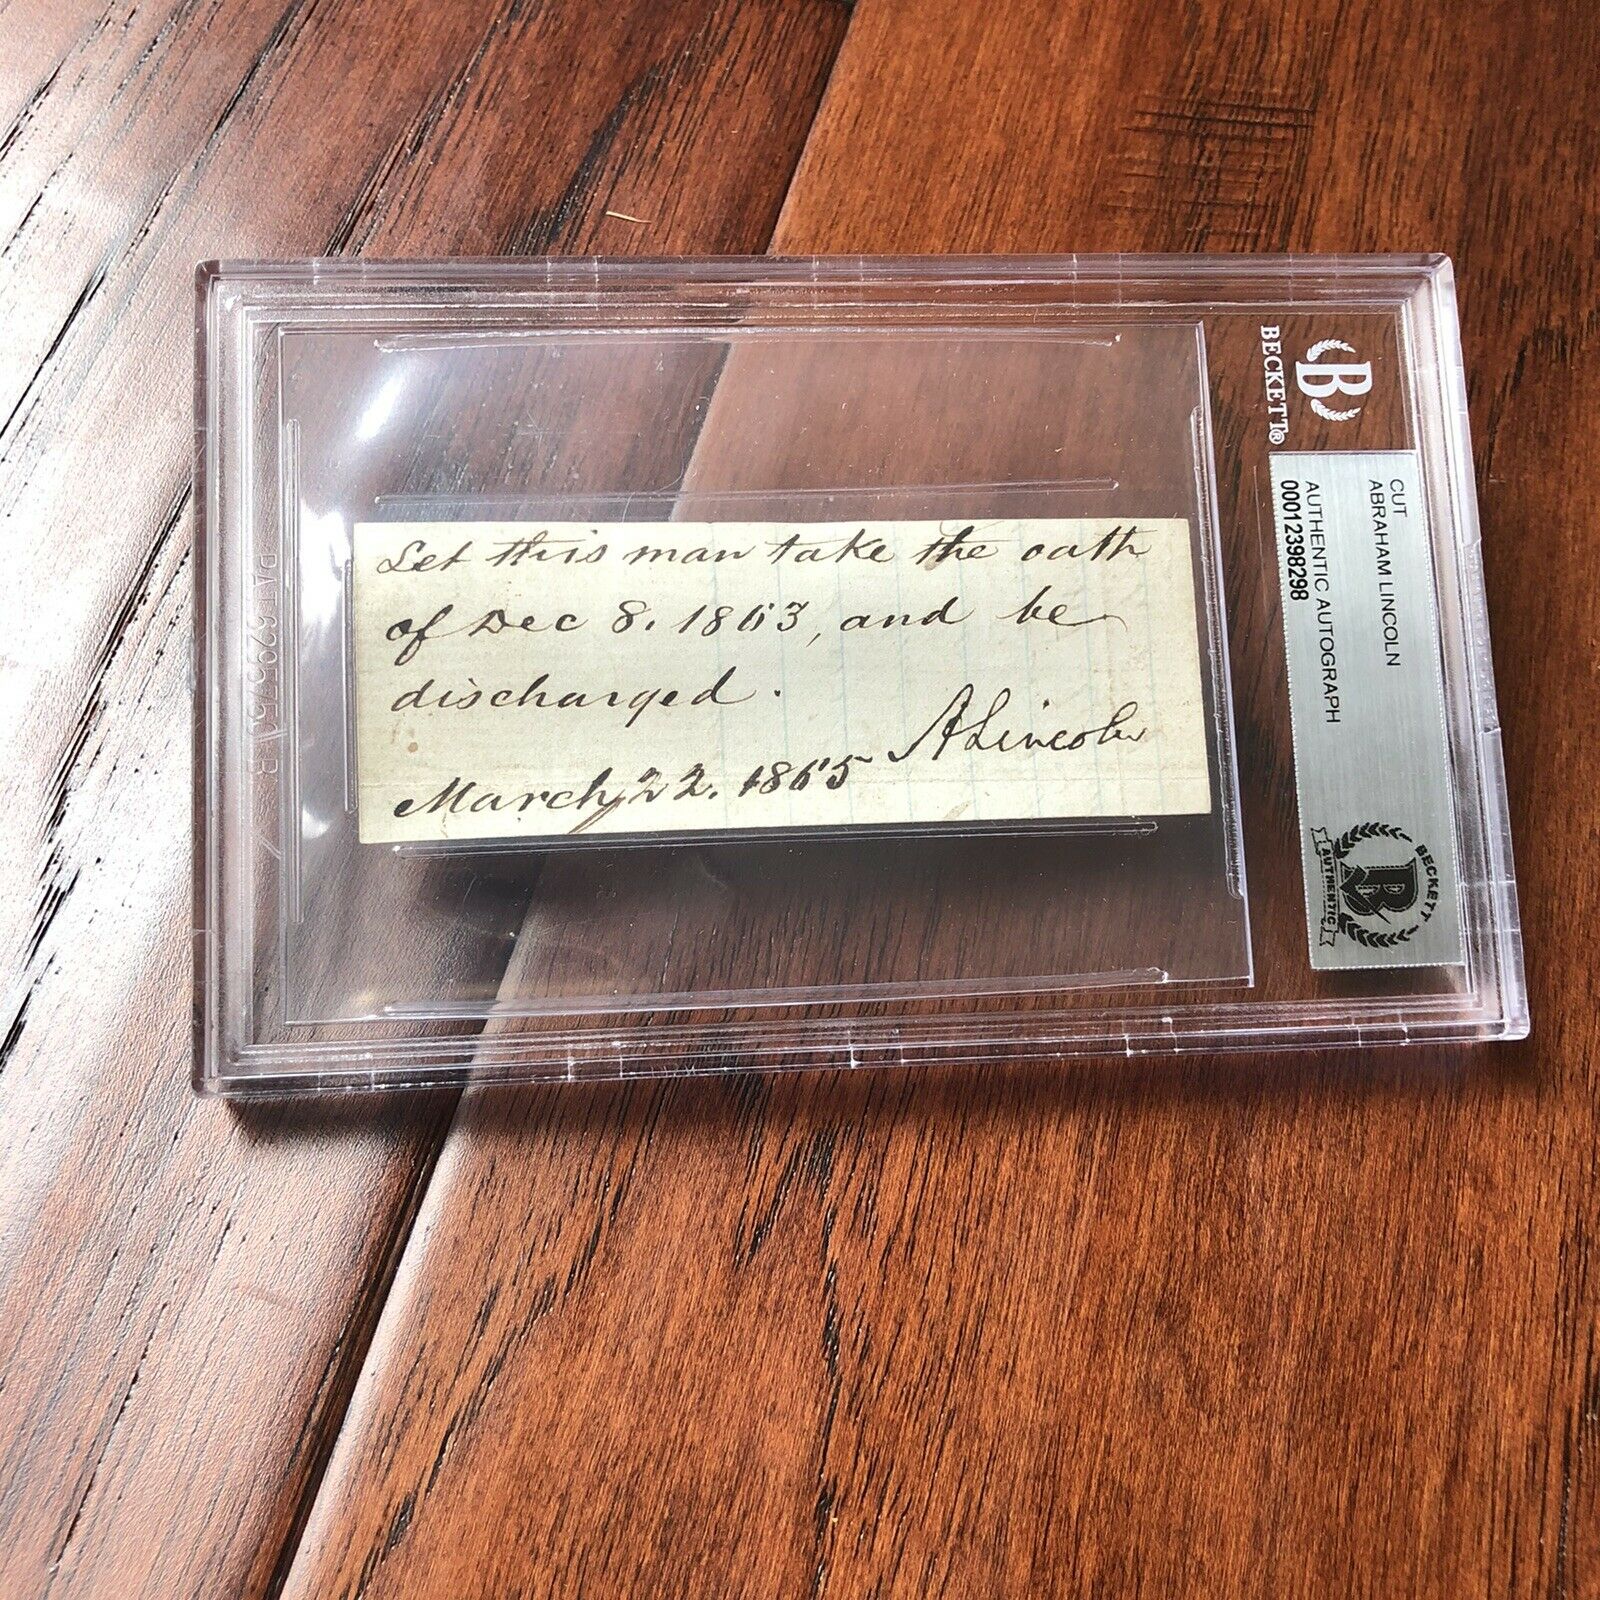 Let this man take the oath
of Dec 8. 1863, and be
discharged.
A Lincoln
March 22. 1865
BECKETT®
B
CUT
ABRAHAM LINCOLN
AUTHENTIC AUTOGRAPH
00012398298
BECKETT
B
AUTHENTIC